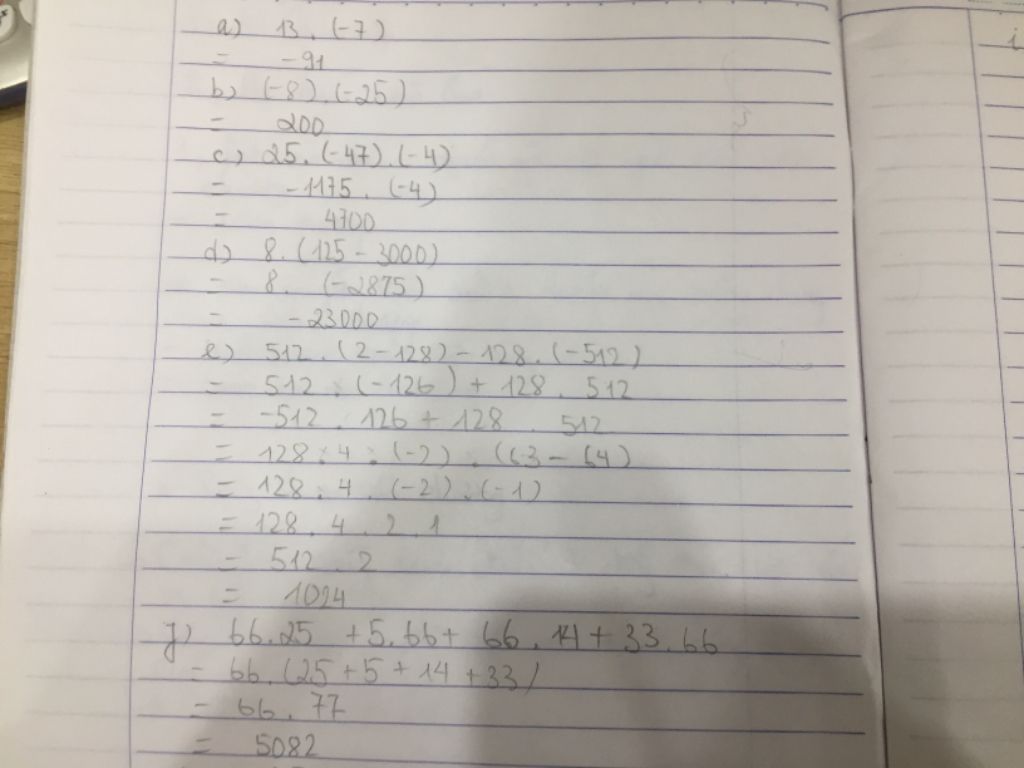 a) 13 . (-7)
= -91
b) (-8) . (-25)
= 200
c) 25 . (-47) . (-4)
= -1175 . (-4)
= 4700
d) 8 . (125 - 3000)
= 8 . (-2875)
= -23000
e) 512 . (2 - 128) - 128 . (-512)
= 512 . (-126) + 128 . 512
= -512 . 126 + 128 . 512
= 128 . 4 . (-2) . (63 - 64)
= 128 . 4 . (-2) . (-1)
= 128 . 4 . 2 . 1
= 512 . 2
= 1024
f) 66 . 25 + 5 . 66 + 66 . 14 + 33 . 66
= 66 . (25 + 5 + 14 + 33)
= 66 . 77
= 5082